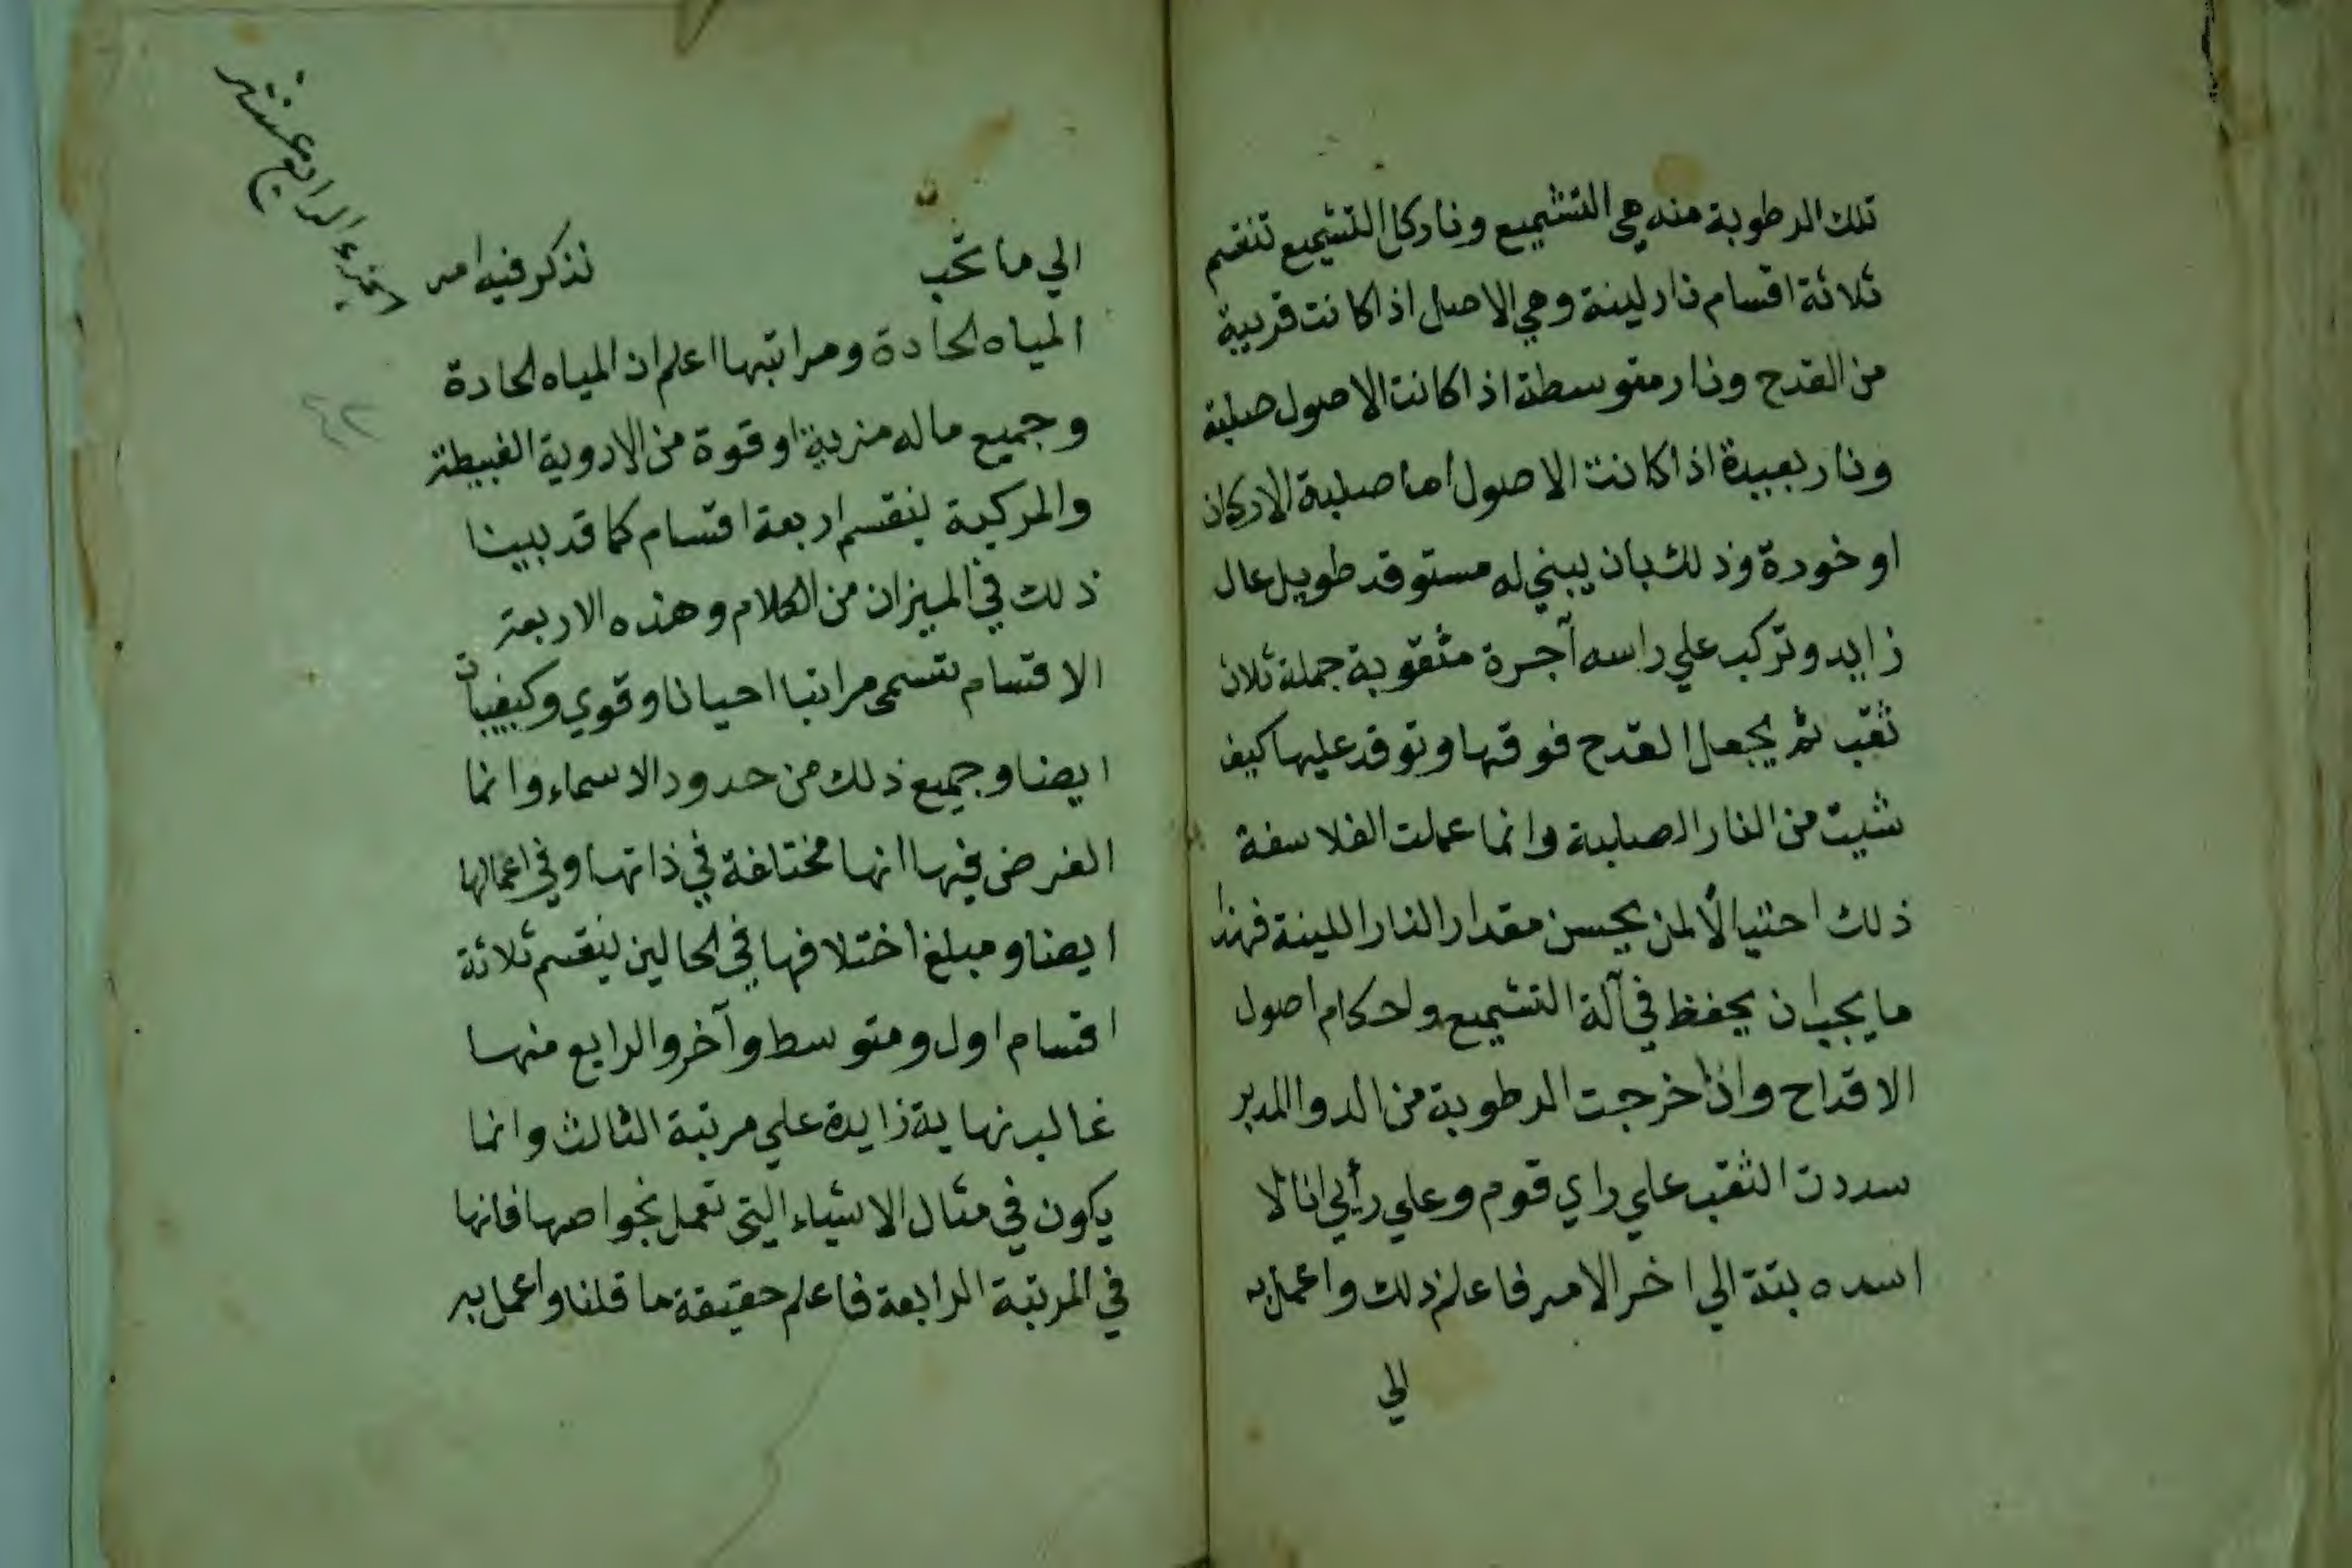 تلك الرطوبة منه هي التشميع ونار كل التشميع تنقسم
ثلاثة اقسام نار لينة وهي الاصل اذا كانت قريبة
من القدح ونار متوسطة اذا كانت الاصول صلبة
ونار بعيدة اذا كانت الاصول اما صلبة الاركان
او خودة وذلك بان يبني له مستوقد طويل عال
زايد وتركب علي راسه آجرة مثقوبة جملة ثلاث
ثقب ثم يجعل القدح فوقها وتوقد عليها كيف
شيت من النار الصلبة وانما عملت الفلاسفة
ذلك احتيالا لمن يحسن مقدار النار اللينة فهذا
ما يجب ان يحفظ في آلة التشميع ولحكام اصول
الاقداح واذا خرجت الرطوبة من الدوا المدبر
سددت الثقب علي راي قوم وعلي رأيي انا لا
اسده بتة الي اخر الامر فاعلم ذلك واعمل به
الي
الي ما تحب نذكر فيه امر
الجزء الرابع عشر
المياه الحادة ومراتبها اعلم ان المياه الحادة
وجميع ما له مزية او قوة من الادوية الغبيطة
والمركبة ينقسم اربعة اقسام كما قد بينا
ذلك في الميزان من الكلام وهذه الاربعة
الاقسام تسمي مراتبا احيانا وقوي وكيفيات
ايضا وجميع ذلك من حدود الاسماء وانما
الغرض فيها انها مختلفة في ذاتها وفي اعمالها
ايضا ومبلغ اختلافها في الحالين ينقسم ثلاثة
اقسام اول ومتوسط وآخر والرابع منها
غالب نهاية زايدة علي مرتبة الثالث وانما
يكون في مثال الاشياء التي تعمل بخواصها فانها
في المرتبة الرابعة فاعلم حقيقة ما قلنا واعمل به